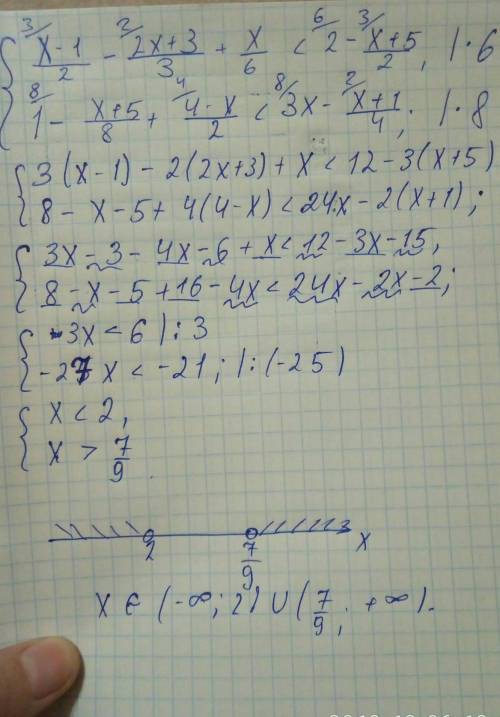 { ³⁄ (x-1)/2 - ²⁄ (2x+3)/3 + x/6 < ⁶⁄ 2 - ³⁄ (x+5)/2, | · 6
⁸⁄ 1 - (x+5)/8 + ⁴⁄ (4-x)/2 < ⁸⁄ 3x - ²⁄ (x+1)/4; | · 8
{ 3(x-1) - 2(2x+3) + x < 12 - 3(x+5)
8 - x - 5 + 4(4-x) < 24x - 2(x+1);
{ 3x - 3 - 4x - 6 + x < 12 - 3x - 15,
8 - x - 5 + 16 - 4x < 24x - 2x - 2;
{ 3x < 6 | : 3
-27x < -21; | : (-25)
{ x < 2,
x > 7/9
2 7/9 x
x ∈ (-∞; 2) ∪ (7/9; +∞).